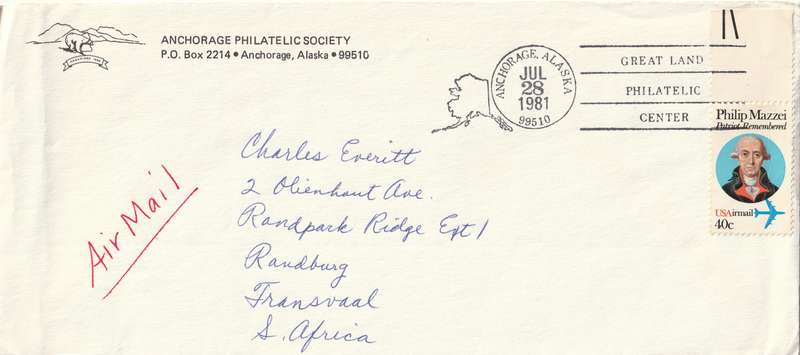 ANCHORAGE PHILATELIC SOCIETY
P.O. Box 2214 • Anchorage, Alaska • 99510
ANCHORAGE, ALASKA
JUL
28
1981
99510
GREAT LAND
PHILATELIC
CENTER
Philip Mazzei
Patriot Remembered
USAirmail
40c
Air Mail
Charles Everitt
2 Olienhout Ave.
Randpark Ridge Ext 1
Randburg
Transvaal
S. Africa